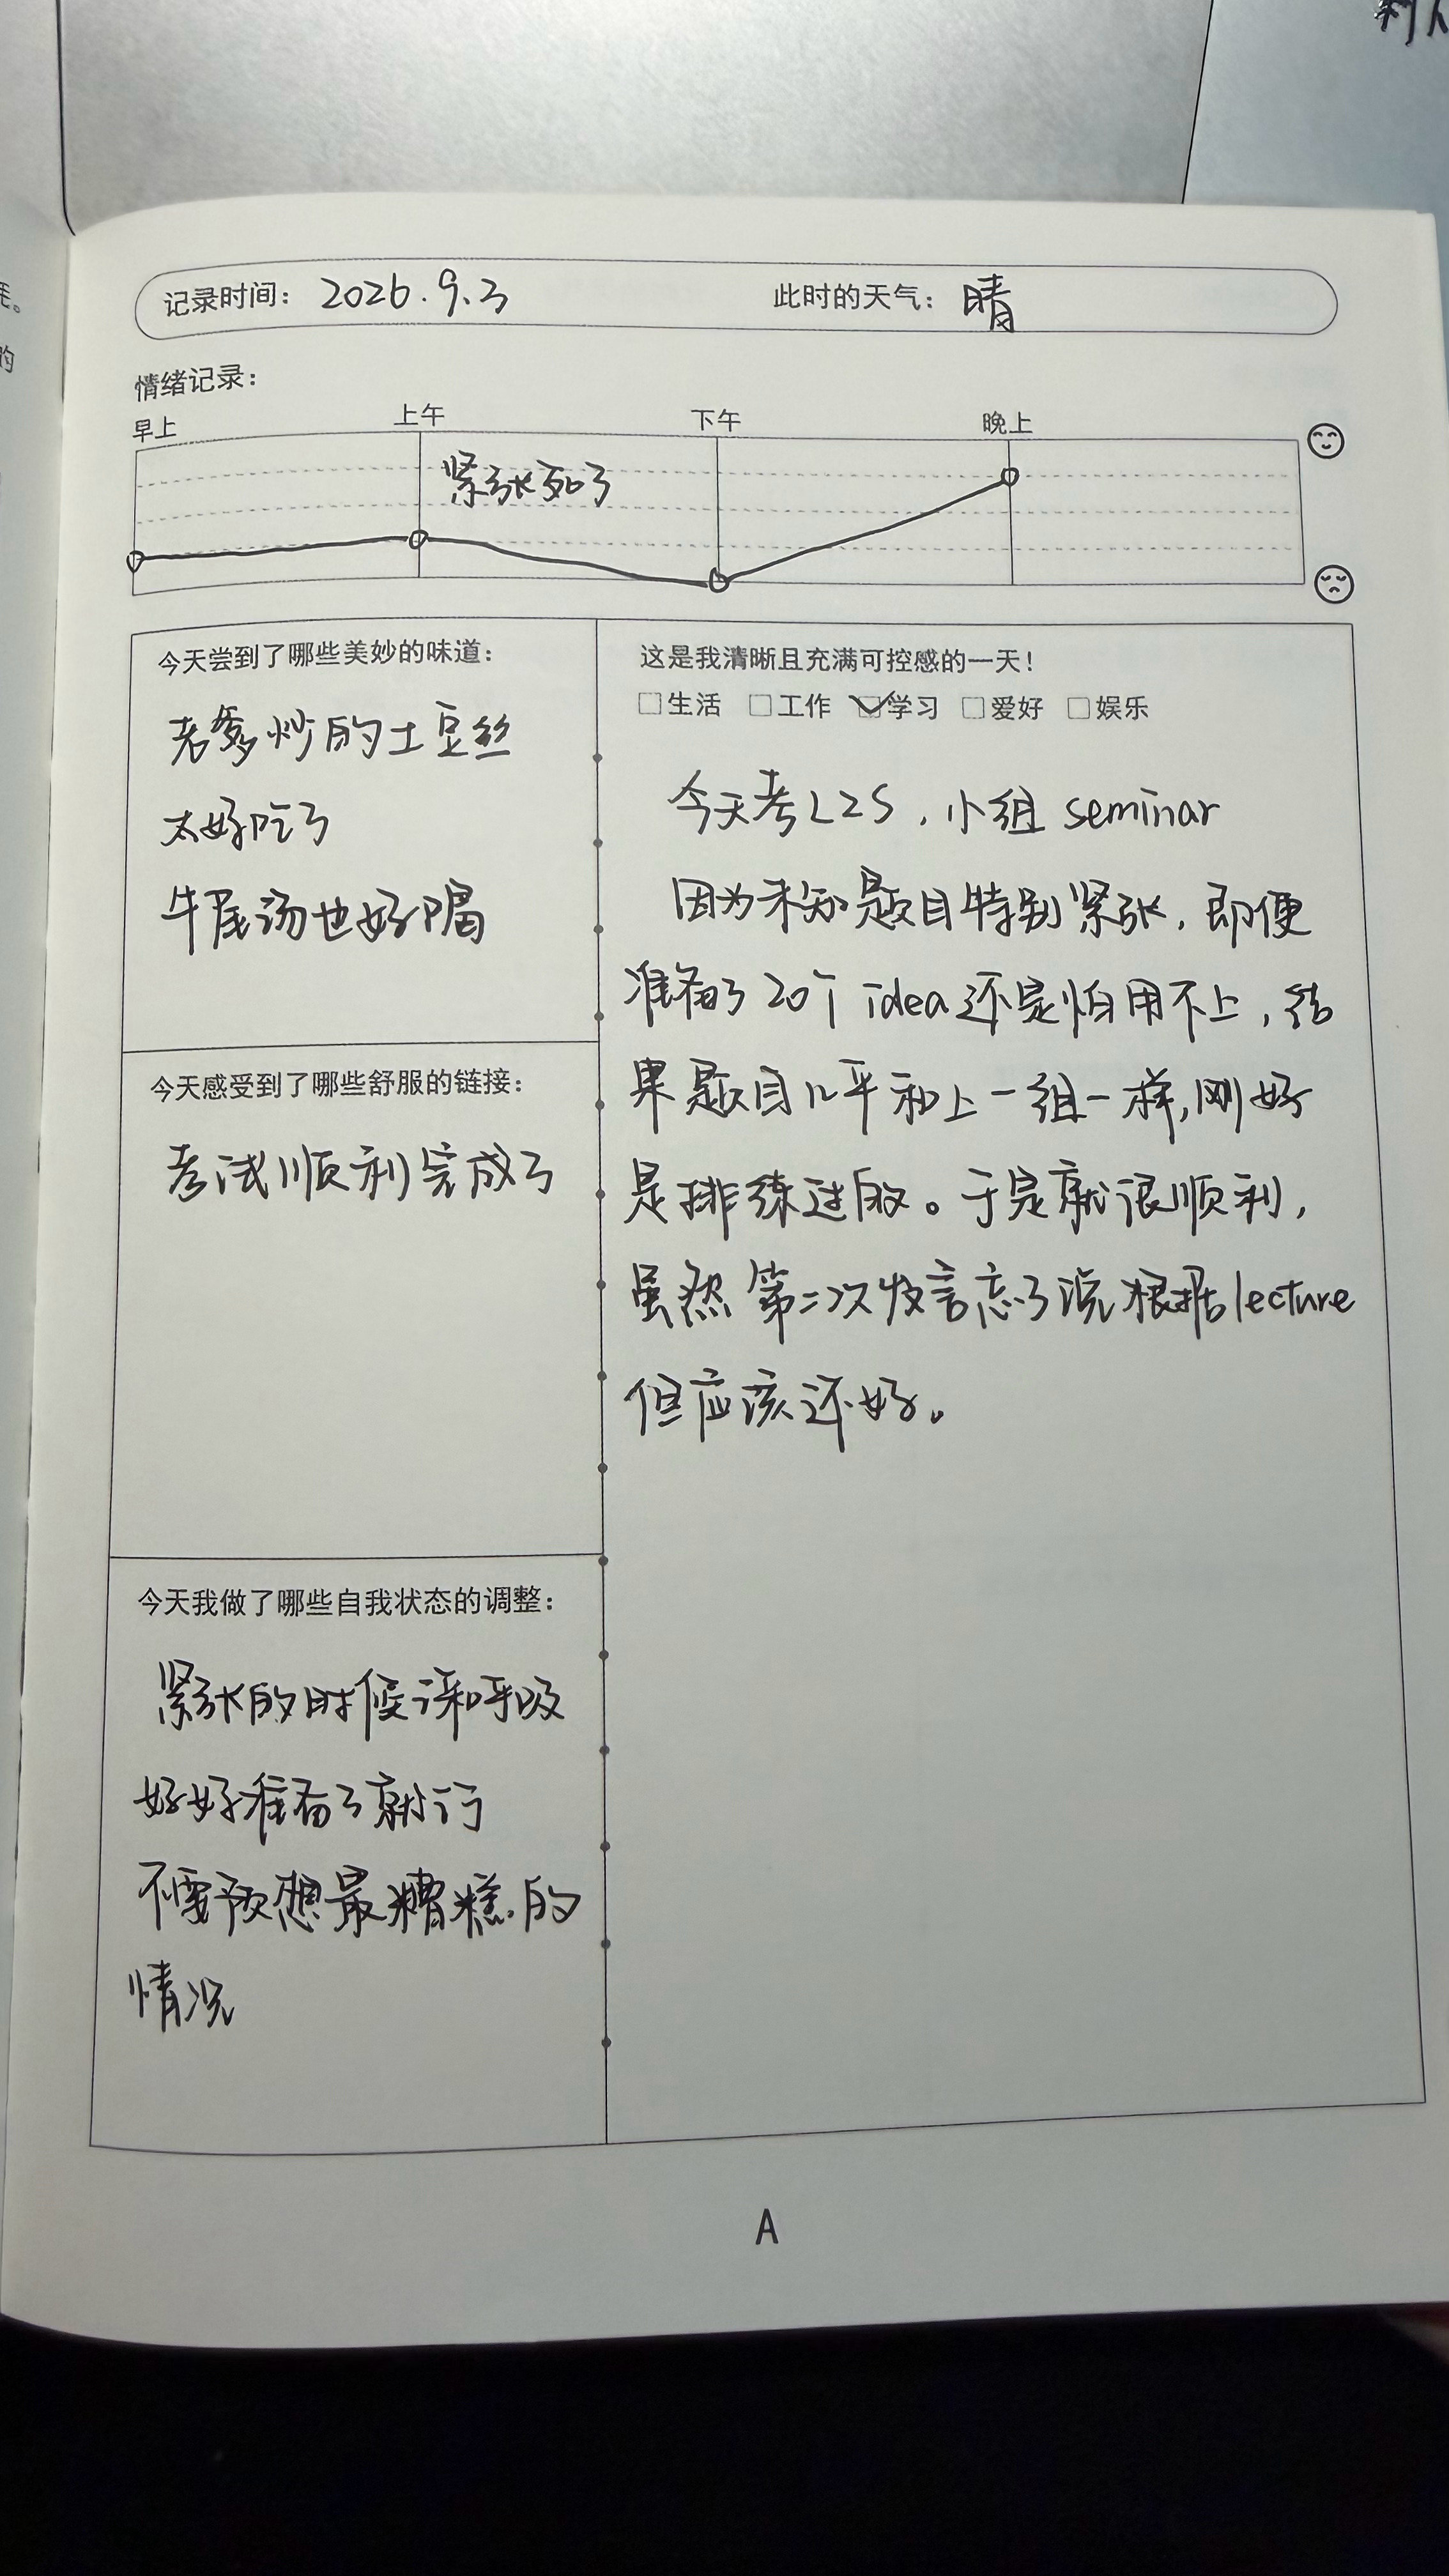 记录时间： 2026.9.3 此时的天气： 晴
情绪记录：
早上 上午 下午 晚上
紧张死了
今天尝到了哪些美妙的味道：
老爹炒的土豆丝
太好吃了
牛尾汤也好喝
今天感受到了哪些舒服的链接：
考试顺利完成了
今天我做了哪些自我状态的调整：
紧张的时候调和呼吸
好好准备了就行
不要预想最糟糕的
情况
这是我清晰且充满可控感的一天！
生活 工作 学习 爱好 娱乐
今天考L2S，小组 seminar
因为未知题目特别紧张，即便
准备了20个 idea 还是怕用不上，结
果题目几乎和上一组一样，刚好
是排练过的。于是就很顺利，
虽然第二次发言忘了说根据lecture
但应该还好。
A